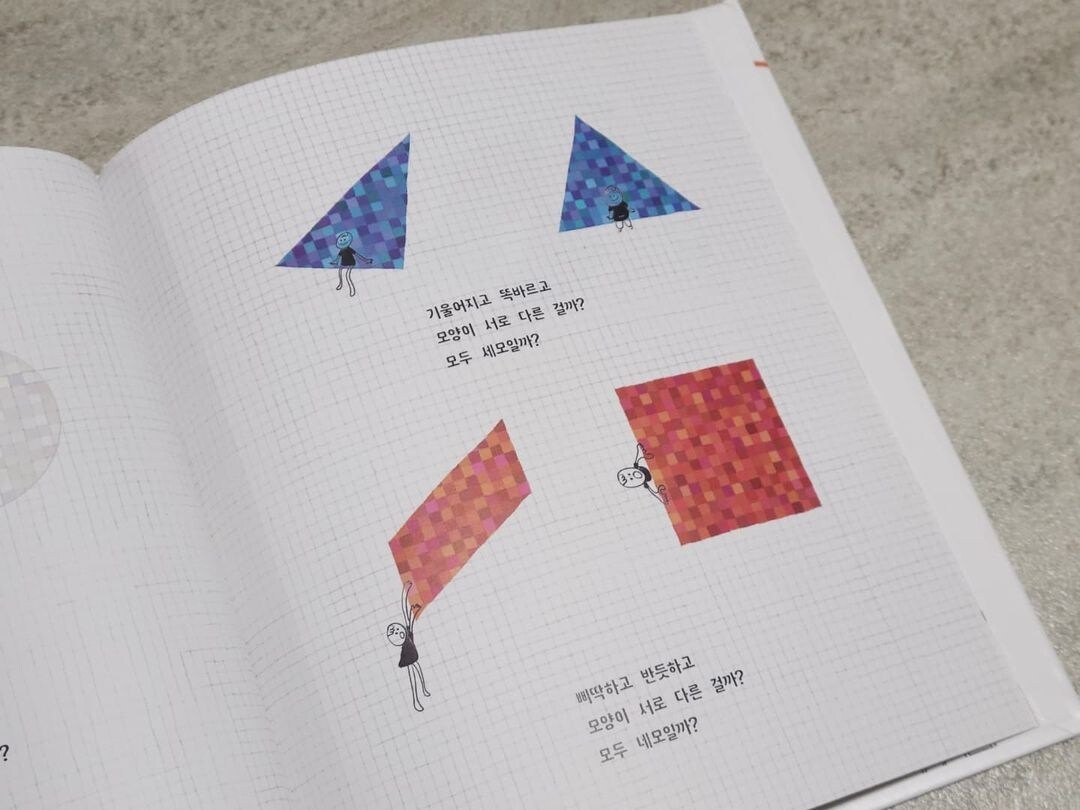 기울어지고 똑바르고
모양이 서로 다른 걸까?
모두 세모일까?
삐딱하고 반듯하고
모양이 서로 다른 걸까?
모두 네모일까?
?